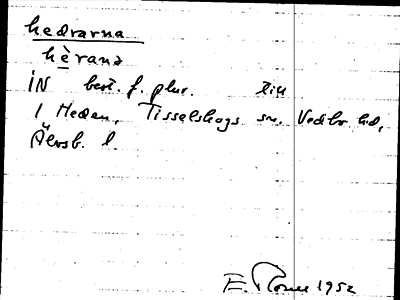 hedrarna
hèrana
IN best. f. plur. till
1 Heden, Tisselskogs sn. Vedbo hd,
Älvsb. l.
E. 1952